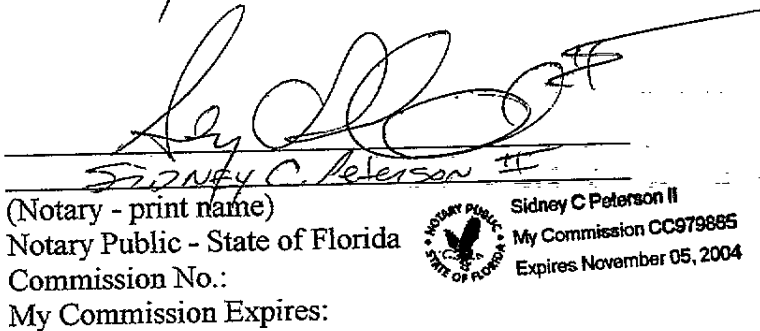 SIDNEY C. Peterson II
(Notary - print name)
Notary Public - State of Florida
Commission No.:
My Commission Expires:
NOTARY PUBLIC
STATE OF FLORIDA
Sidney C Peterson II
My Commission CC979885
Expires November 05, 2004